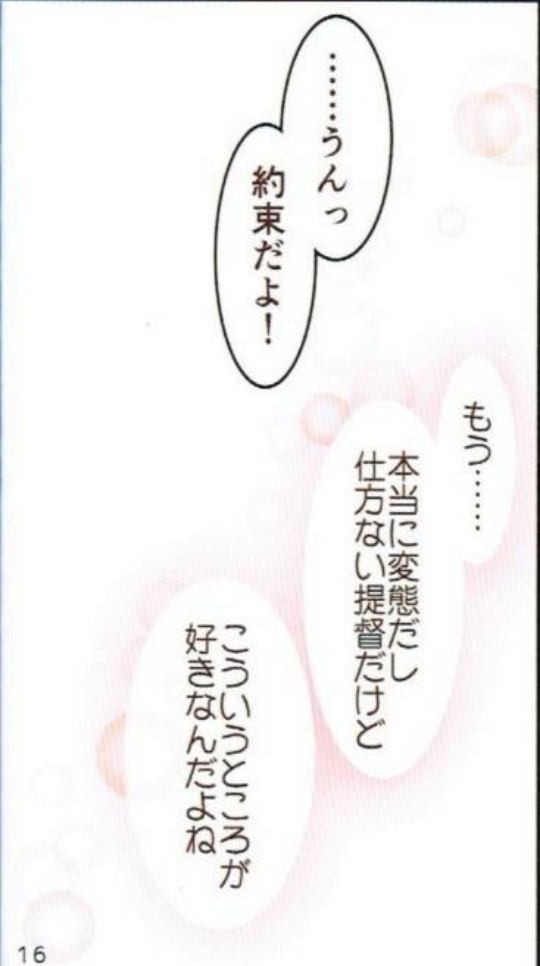 ……うんっ
約束だよ！
もう……
本当に変態だし
仕方ない提督だけど
こういうところが
好きなんだよね
16